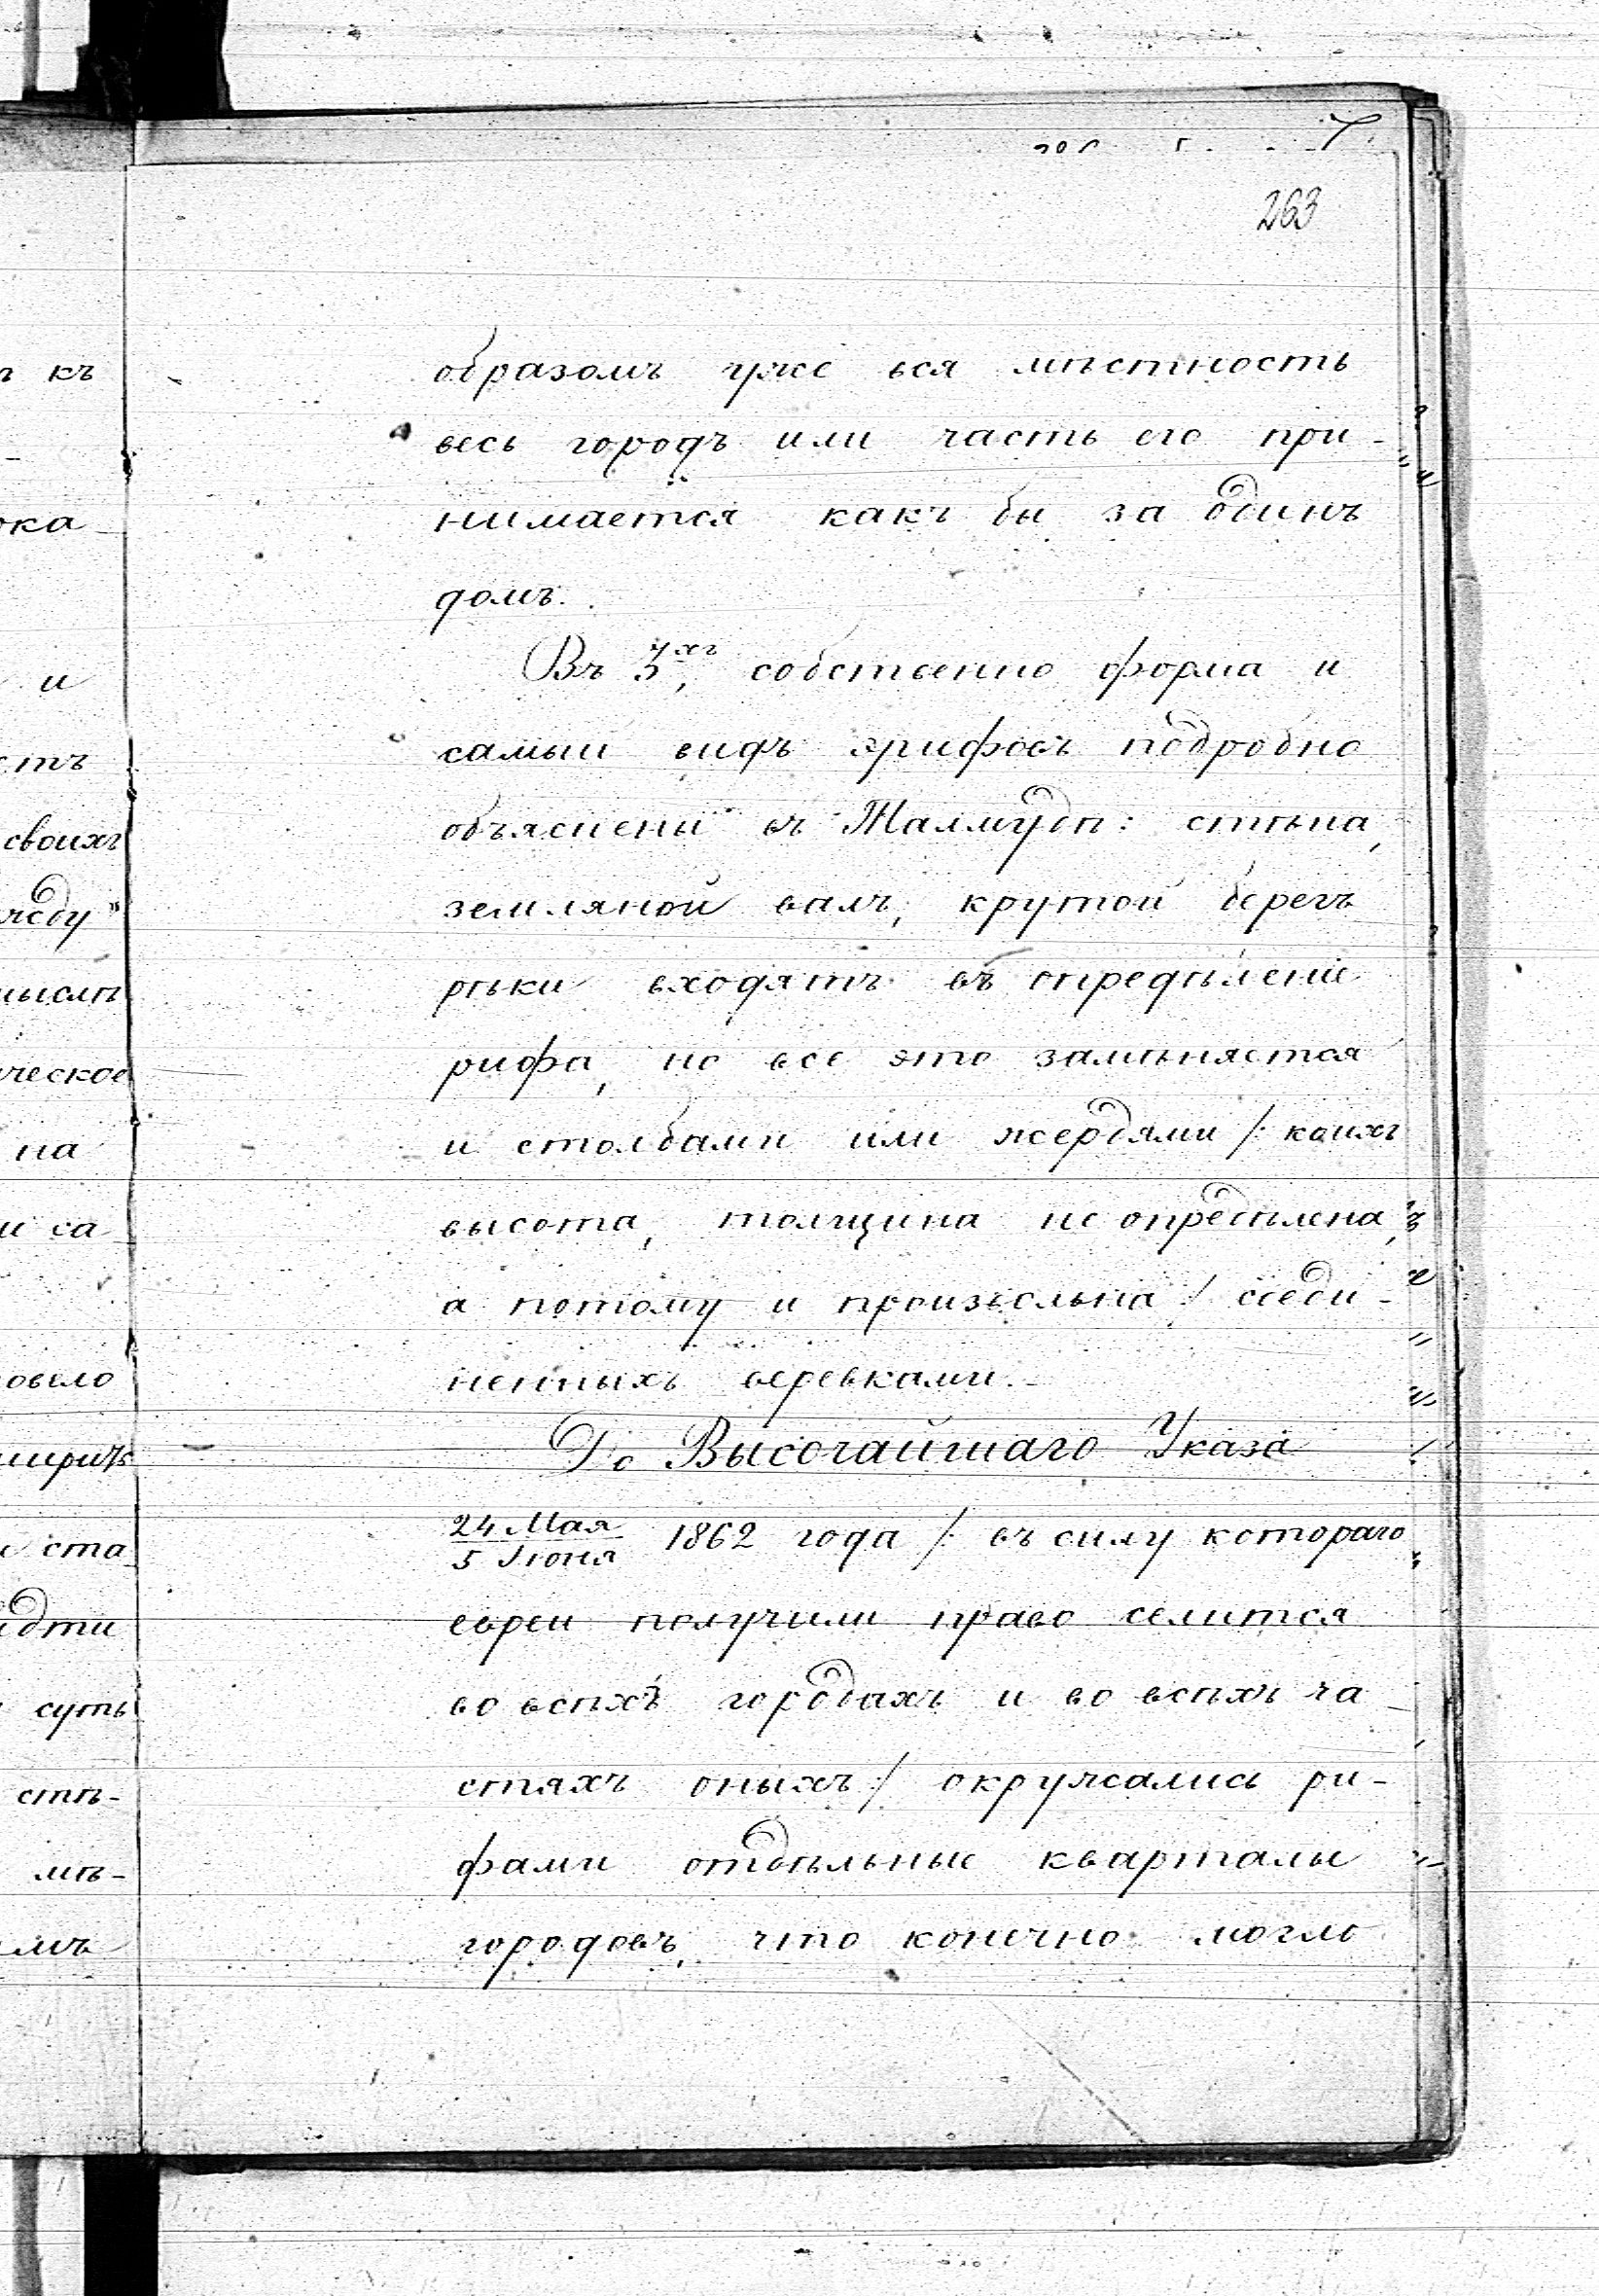 263
образомъ уже вся мѣстность
весь городъ или часть его при-
нимается какъ бы за одинъ
домъ.
Въ 3хъ, собственно форма и
самый видъ эрифовъ подробно
объяснены въ Талмудѣ: стѣна,
земляной валъ, крутой берегъ
рѣки входятъ въ опредѣленіе
рифа, но все это замѣняется
и столбами или жердями /: коихъ
высота, толщина не опредѣлена,
а потому и произвольна :/ соеди-
ненныхъ веревками.
До Высочайшаго Указа
24 Мая
5 Іюня 1862 года /: въ силу котораго
евреи получили право селится
во всѣхъ городахъ и во всѣхъ ча-
стяхъ оныхъ :/ окружались ри-
фами отдѣльные кварталы
городовъ, что конечно могло
къ
и
своихъ
на
суть
стѣ-
мѣ-